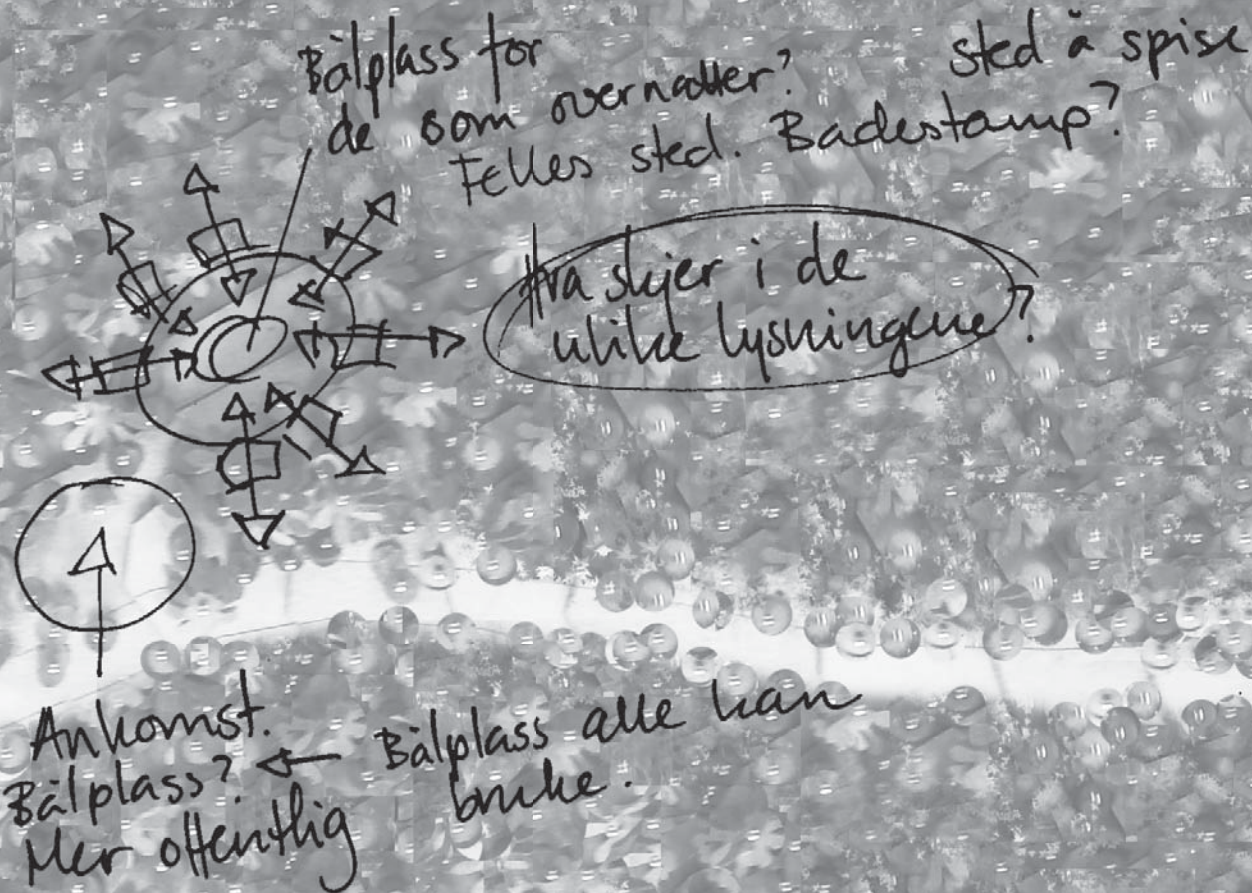 Bålplass for
de som overnatter?
Felles sted. Badestamp?
sted å spise
Hva skjer i de
ulike lysningene?
Ankomst.
Bålplass? ← Bålplass alle kan
bruke.
Mer offentlig